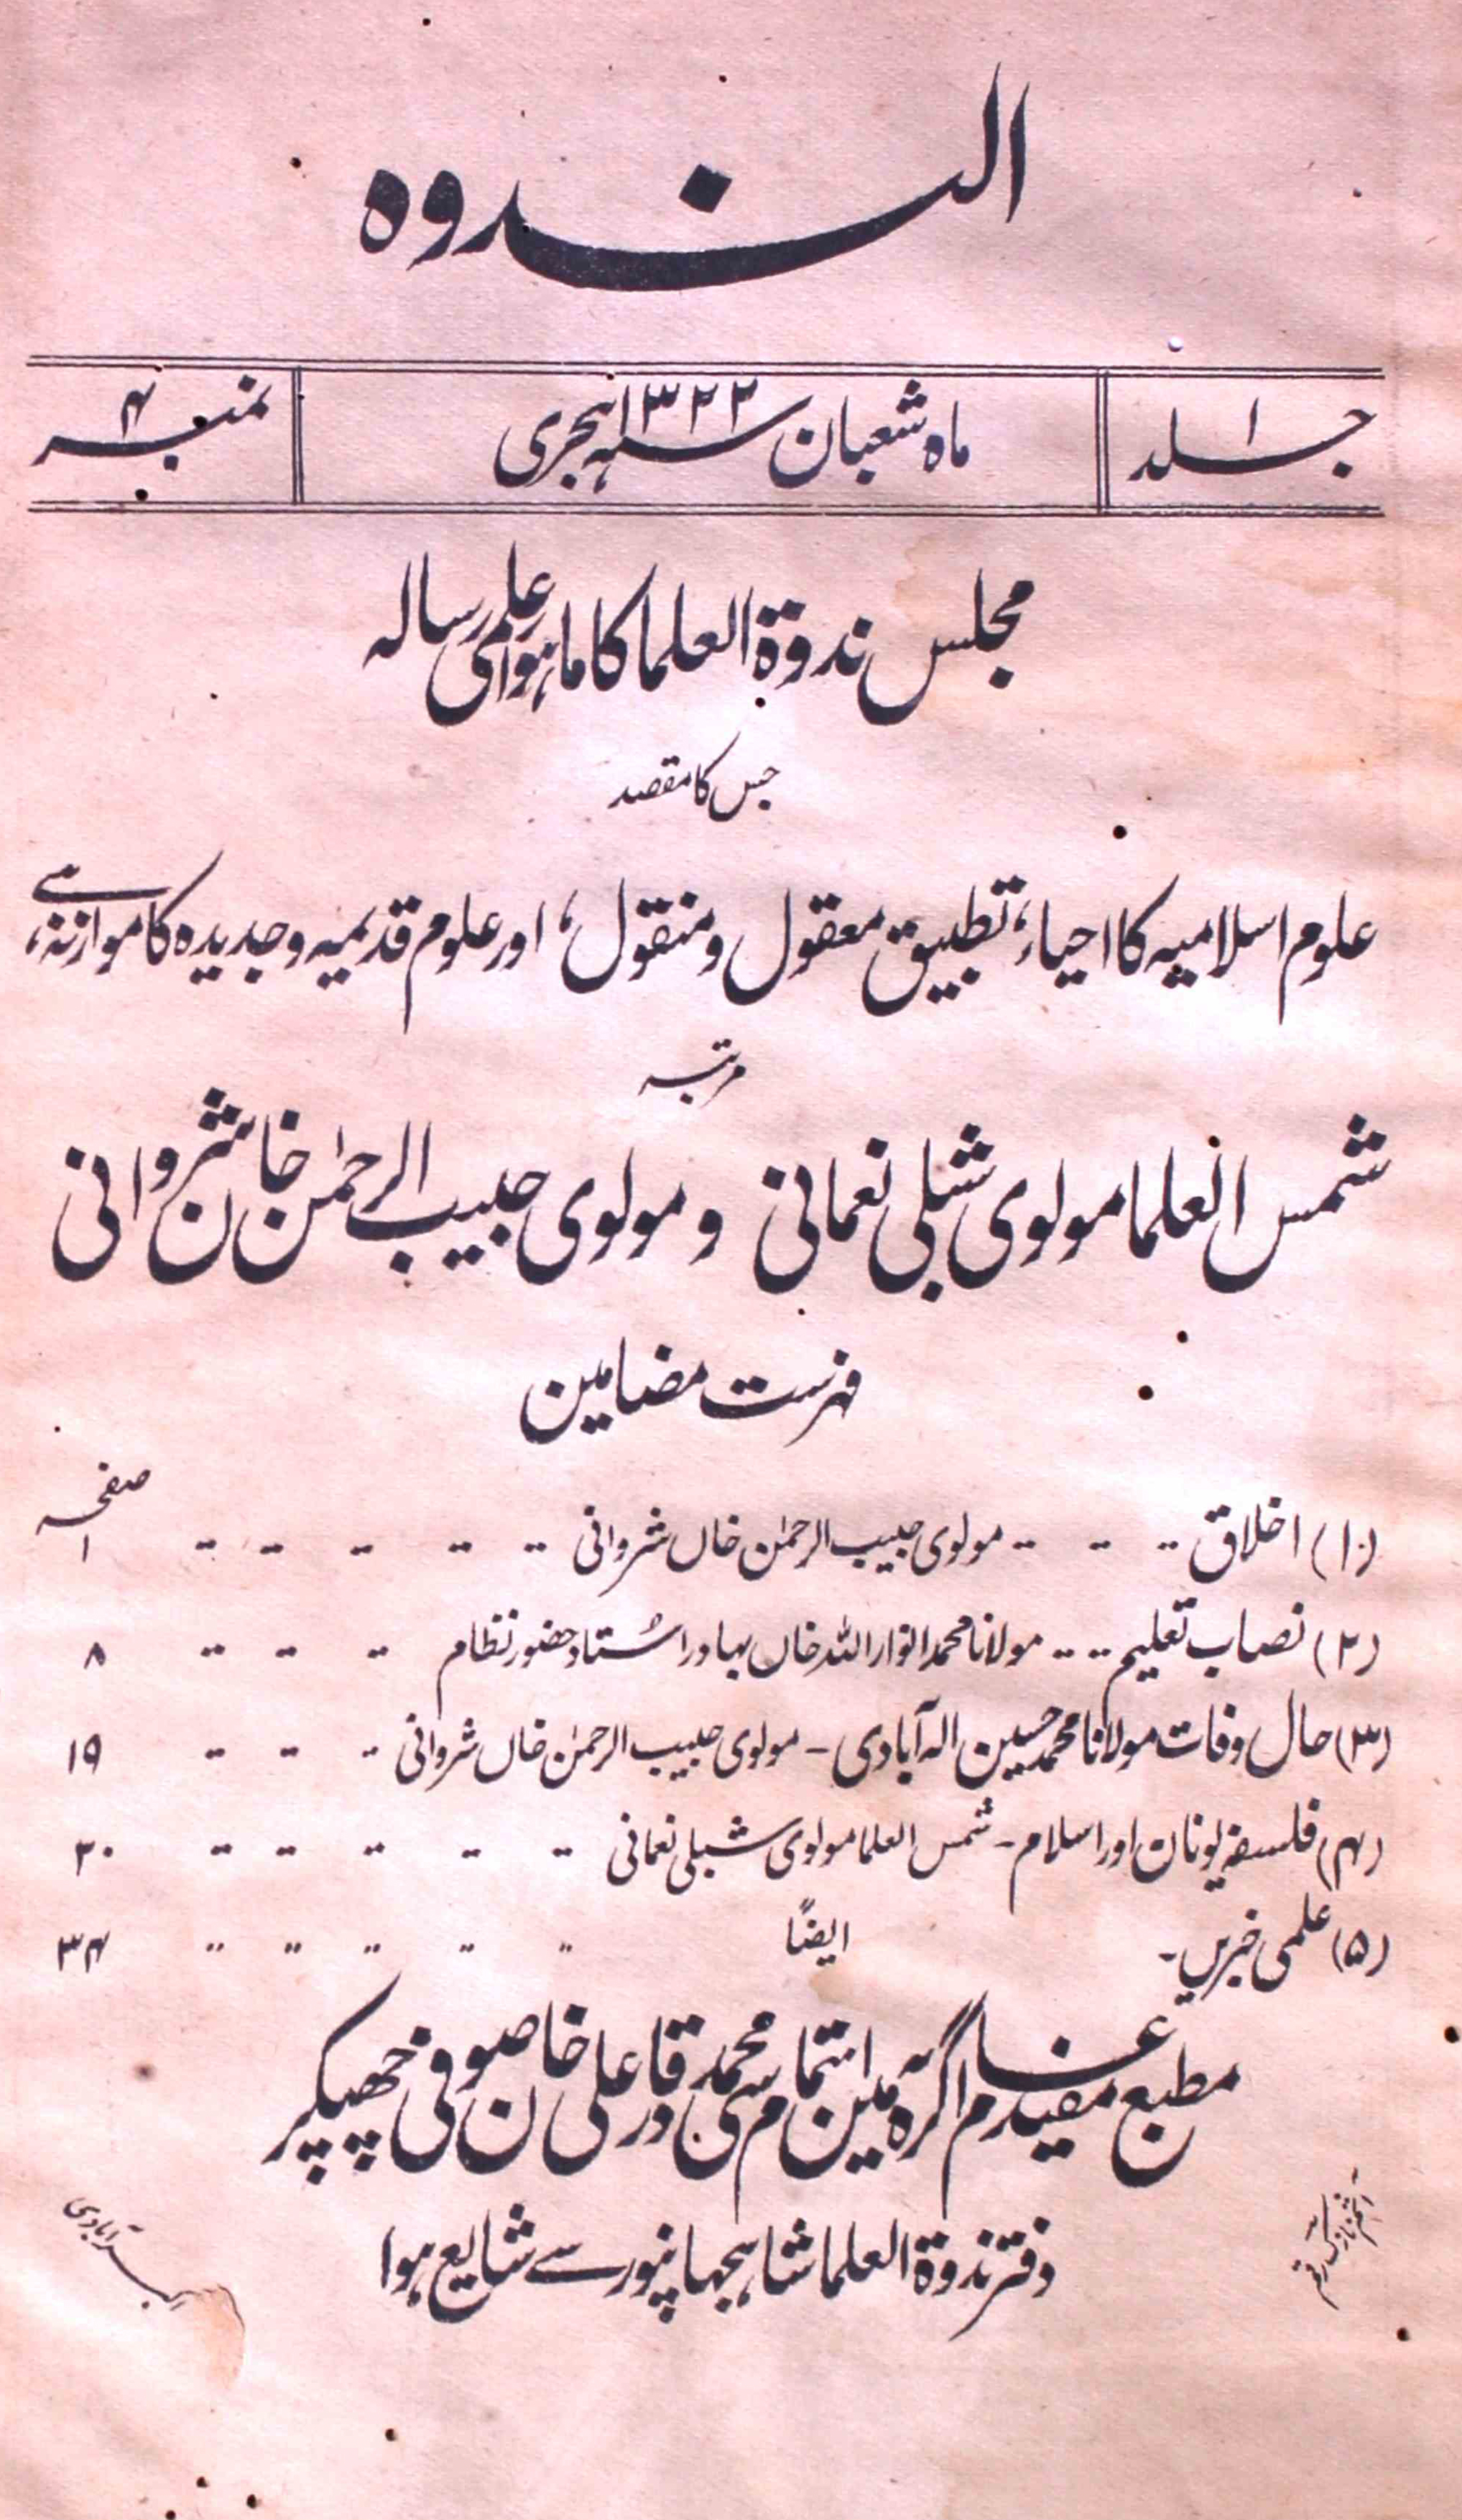 الندوہ
جلد ۱ ماہ شعبان سنہ ۱۳۲۲ ہجری نمبر ۴
مجلس ندوۃ العلما کا ماہوار علمی رسالہ
جس کا مقصد
علوم اسلامیہ کا احیاء، تطبیق معقول و منقول، اور علوم قدیمہ و جدیدہ کا موازنہ ہے،
مرتبہ
شمس العلما مولوی شبلی نعمانی و مولوی حبیب الرحمٰن خان شروانی
فہرست مضامین
صفحہ
(۱) اخلاق .. .. .. مولوی حبیب الرحمٰن خاں شروانی .. .. .. .. .. ۱
(۲) نصاب تعلیم .. .. مولانا محمد انوار اللہ خاں بہادر اُستاد حضور نظام .. .. .. ۸
(۳) حال وفات مولانا محمد حسین الہ آبادی - مولوی حبیب الرحمٰن خاں شروانی .. .. .. ۱۹
(۴) فلسفہ یونان اور اسلام - شمس العلما مولوی شبلی نعمانی .. .. .. .. .. ۲۰
(۵) علمی خبریں - ایضاً .. .. .. .. .. ۳۴
مطبع مفید عام آگرہ مین اہتمام سی محمد قادر علی خان صوفی چھپکر
دفتر ندوۃ العلما شاہجہانپور سے شایع ہوا